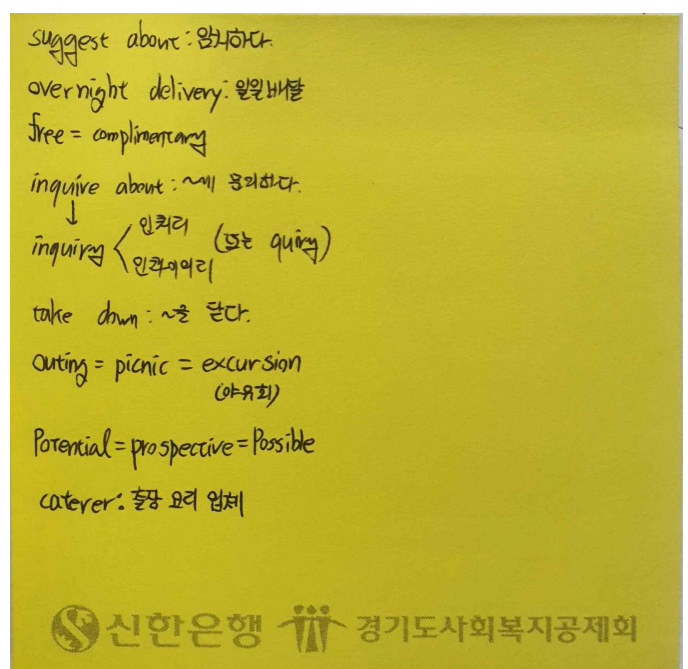 suggest about : 암시하다.
overnight delivery : 일일배달
free = complimentary
inquire about : ~에 문의하다.
↓
inquiry < 인쿼리
인콰이어리 (또는 quiry)
take down : ~을 닫다.
outing = picnic = excursion
(야유회)
Potential = prospective = Possible
caterer : 출장 요리 업체
신한은행 경기도사회복지공제회